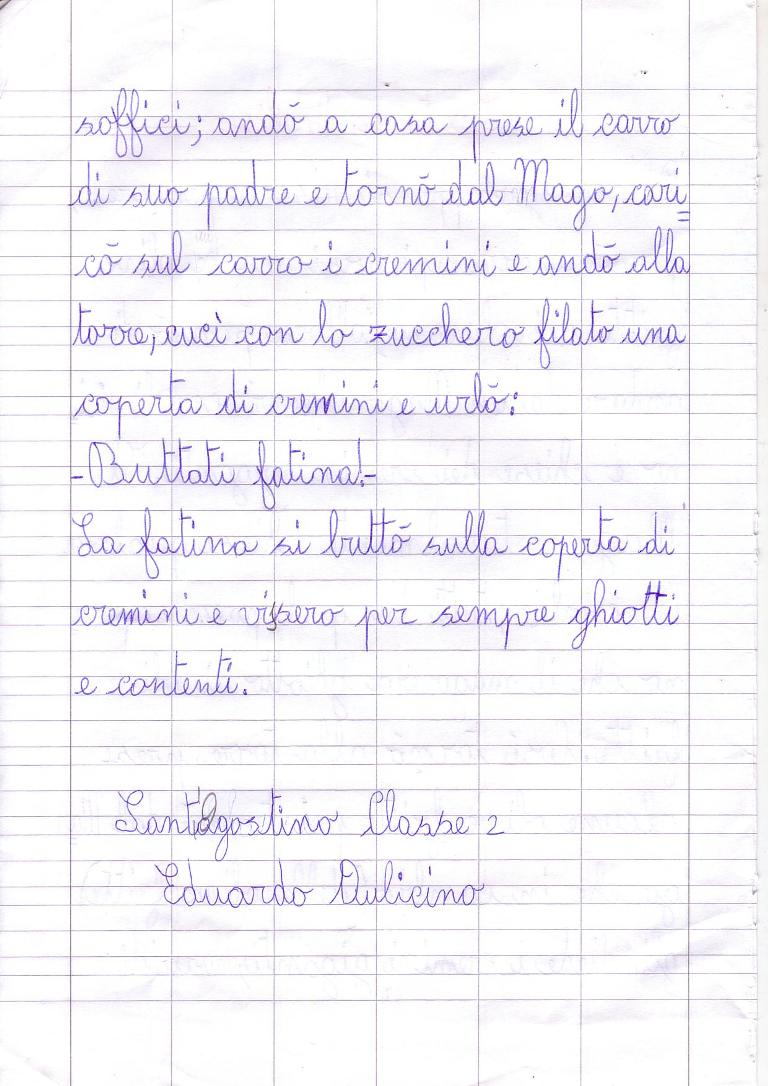 soffici; andò a casa prese il carro
di suo padre e tornò dal Mago, cari=
cò sul carro i cremini e andò alla
torre, cucì con lo zucchero filato una
coperta di cremini e urlò:
-Buttati fatina!-
La fatina si buttò sulla coperta di
cremini e vissero per sempre ghiotti
e contenti.
Sant'Agostino Classe 2
Eduardo Aulicino